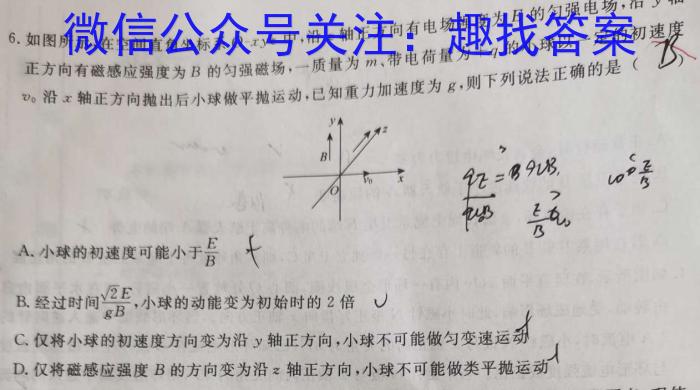 微信公众号关注：趣找答案
6. 如图所示,在空间直角坐标系O-xyz中,沿z轴正方向有电场强度为E的匀强电场,沿y轴
正方向有磁感应强度为B的匀强磁场,一质量为m、带电荷量为
v₀沿x轴正方向抛出后小球做平抛运动,已知重力加速度为g,则下列说法正确的是( B )
y
z
B
O
v₀
x
qE = qvB
E/B
A. 小球的初速度可能小于E/B
B. 经过时间√2E/gB,小球的动能变为初始时的2倍
C. 仅将小球的初速度方向变为沿y轴正方向,小球不可能做匀变速运动
D. 仅将磁感应强度B的方向变为沿z轴正方向,小球不可能做类平抛运动